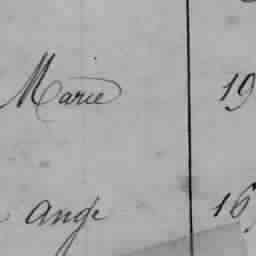 Marie 19
Ange 16